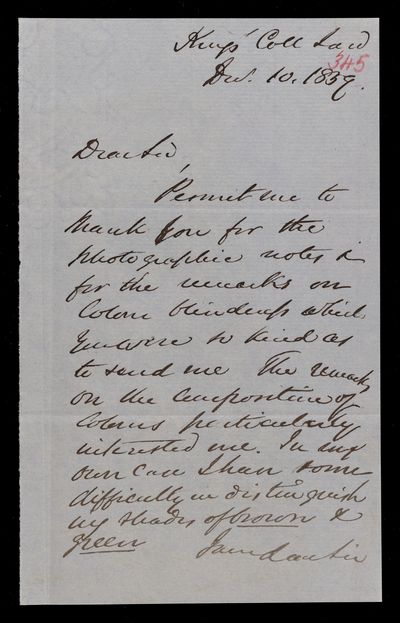 Kings' Coll Lond
345
Dec. 10. 1859.
Dear Sir,
Permit me to
thank you for the
photographic notes &
for the remarks on
Colour blindness which
you were so kind as
to send me The remarks
on the composition of
Colours particularly
interested me. In my
own case I have some
difficulty in distinguish
ing shades of brown &
green
I am dear Sir